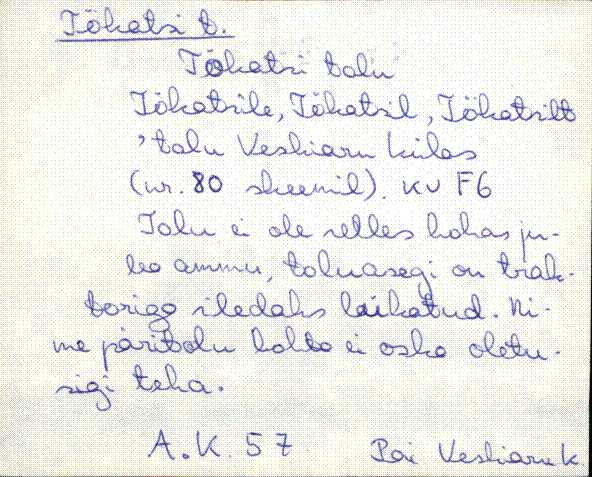 Tõkatsi t.
Tõkatsi talu
Tõkatsile, Tõkatsil, Tõkatsilt
'talu Veskiaru külas
(nr. 80 skeemil). KV F6
Talu ei ole selles kohas ju-
ba ammu, taluasegi on trak-
toriga siledaks lükatud. Ni-
me päritolu kohta ei oska oletu-
sigi teha.
A.K. 57 Pai Veskiaru k